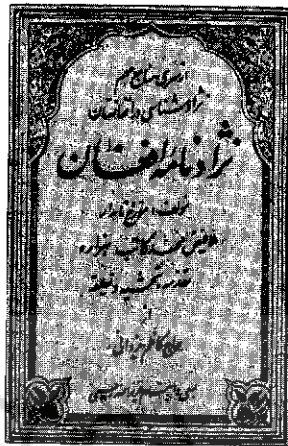 از سری منابع مهم
نژادشناسی در افغانستان
نژادنامه افغان
مؤلف: مورخ نامدار
ملا فیض محمد کاتب هزاره
مقدمه تحشیه و تعلیقه
از
حاج کاظم یزدانی